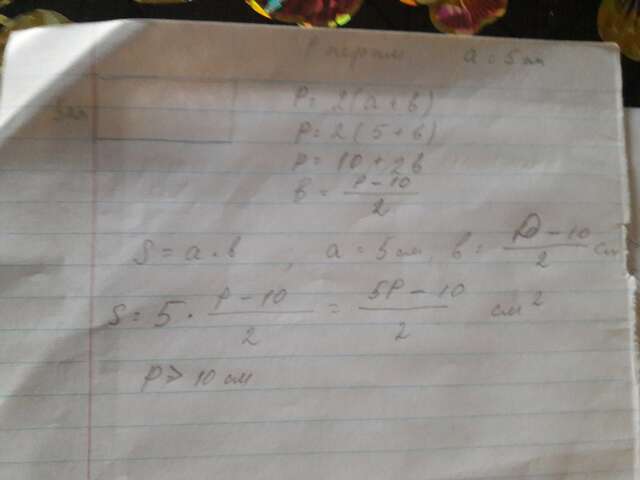 P перим a = 5 см
5см
P = 2(a+b)
P = 2(5+b)
P = 10 + 2b
b = P-10/2
S = a·b ; a = 5 см, b = P-10/2 см
S = 5 · P-10/2 = 5P-10/2 см²
P > 10 см